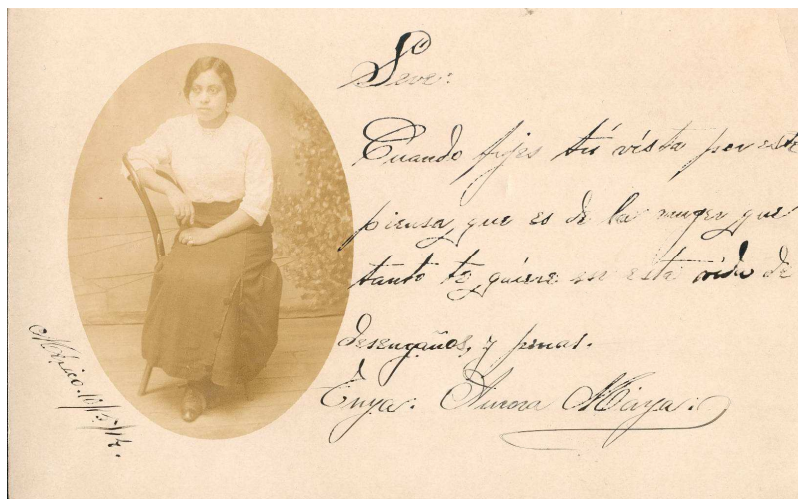 Seve:
Cuando fijes tú vista por este
piensa, que es de la muger que
tanto te quiere en esta vida de
desengaños, y penas.
Tuya: Aurora Maya.
México.